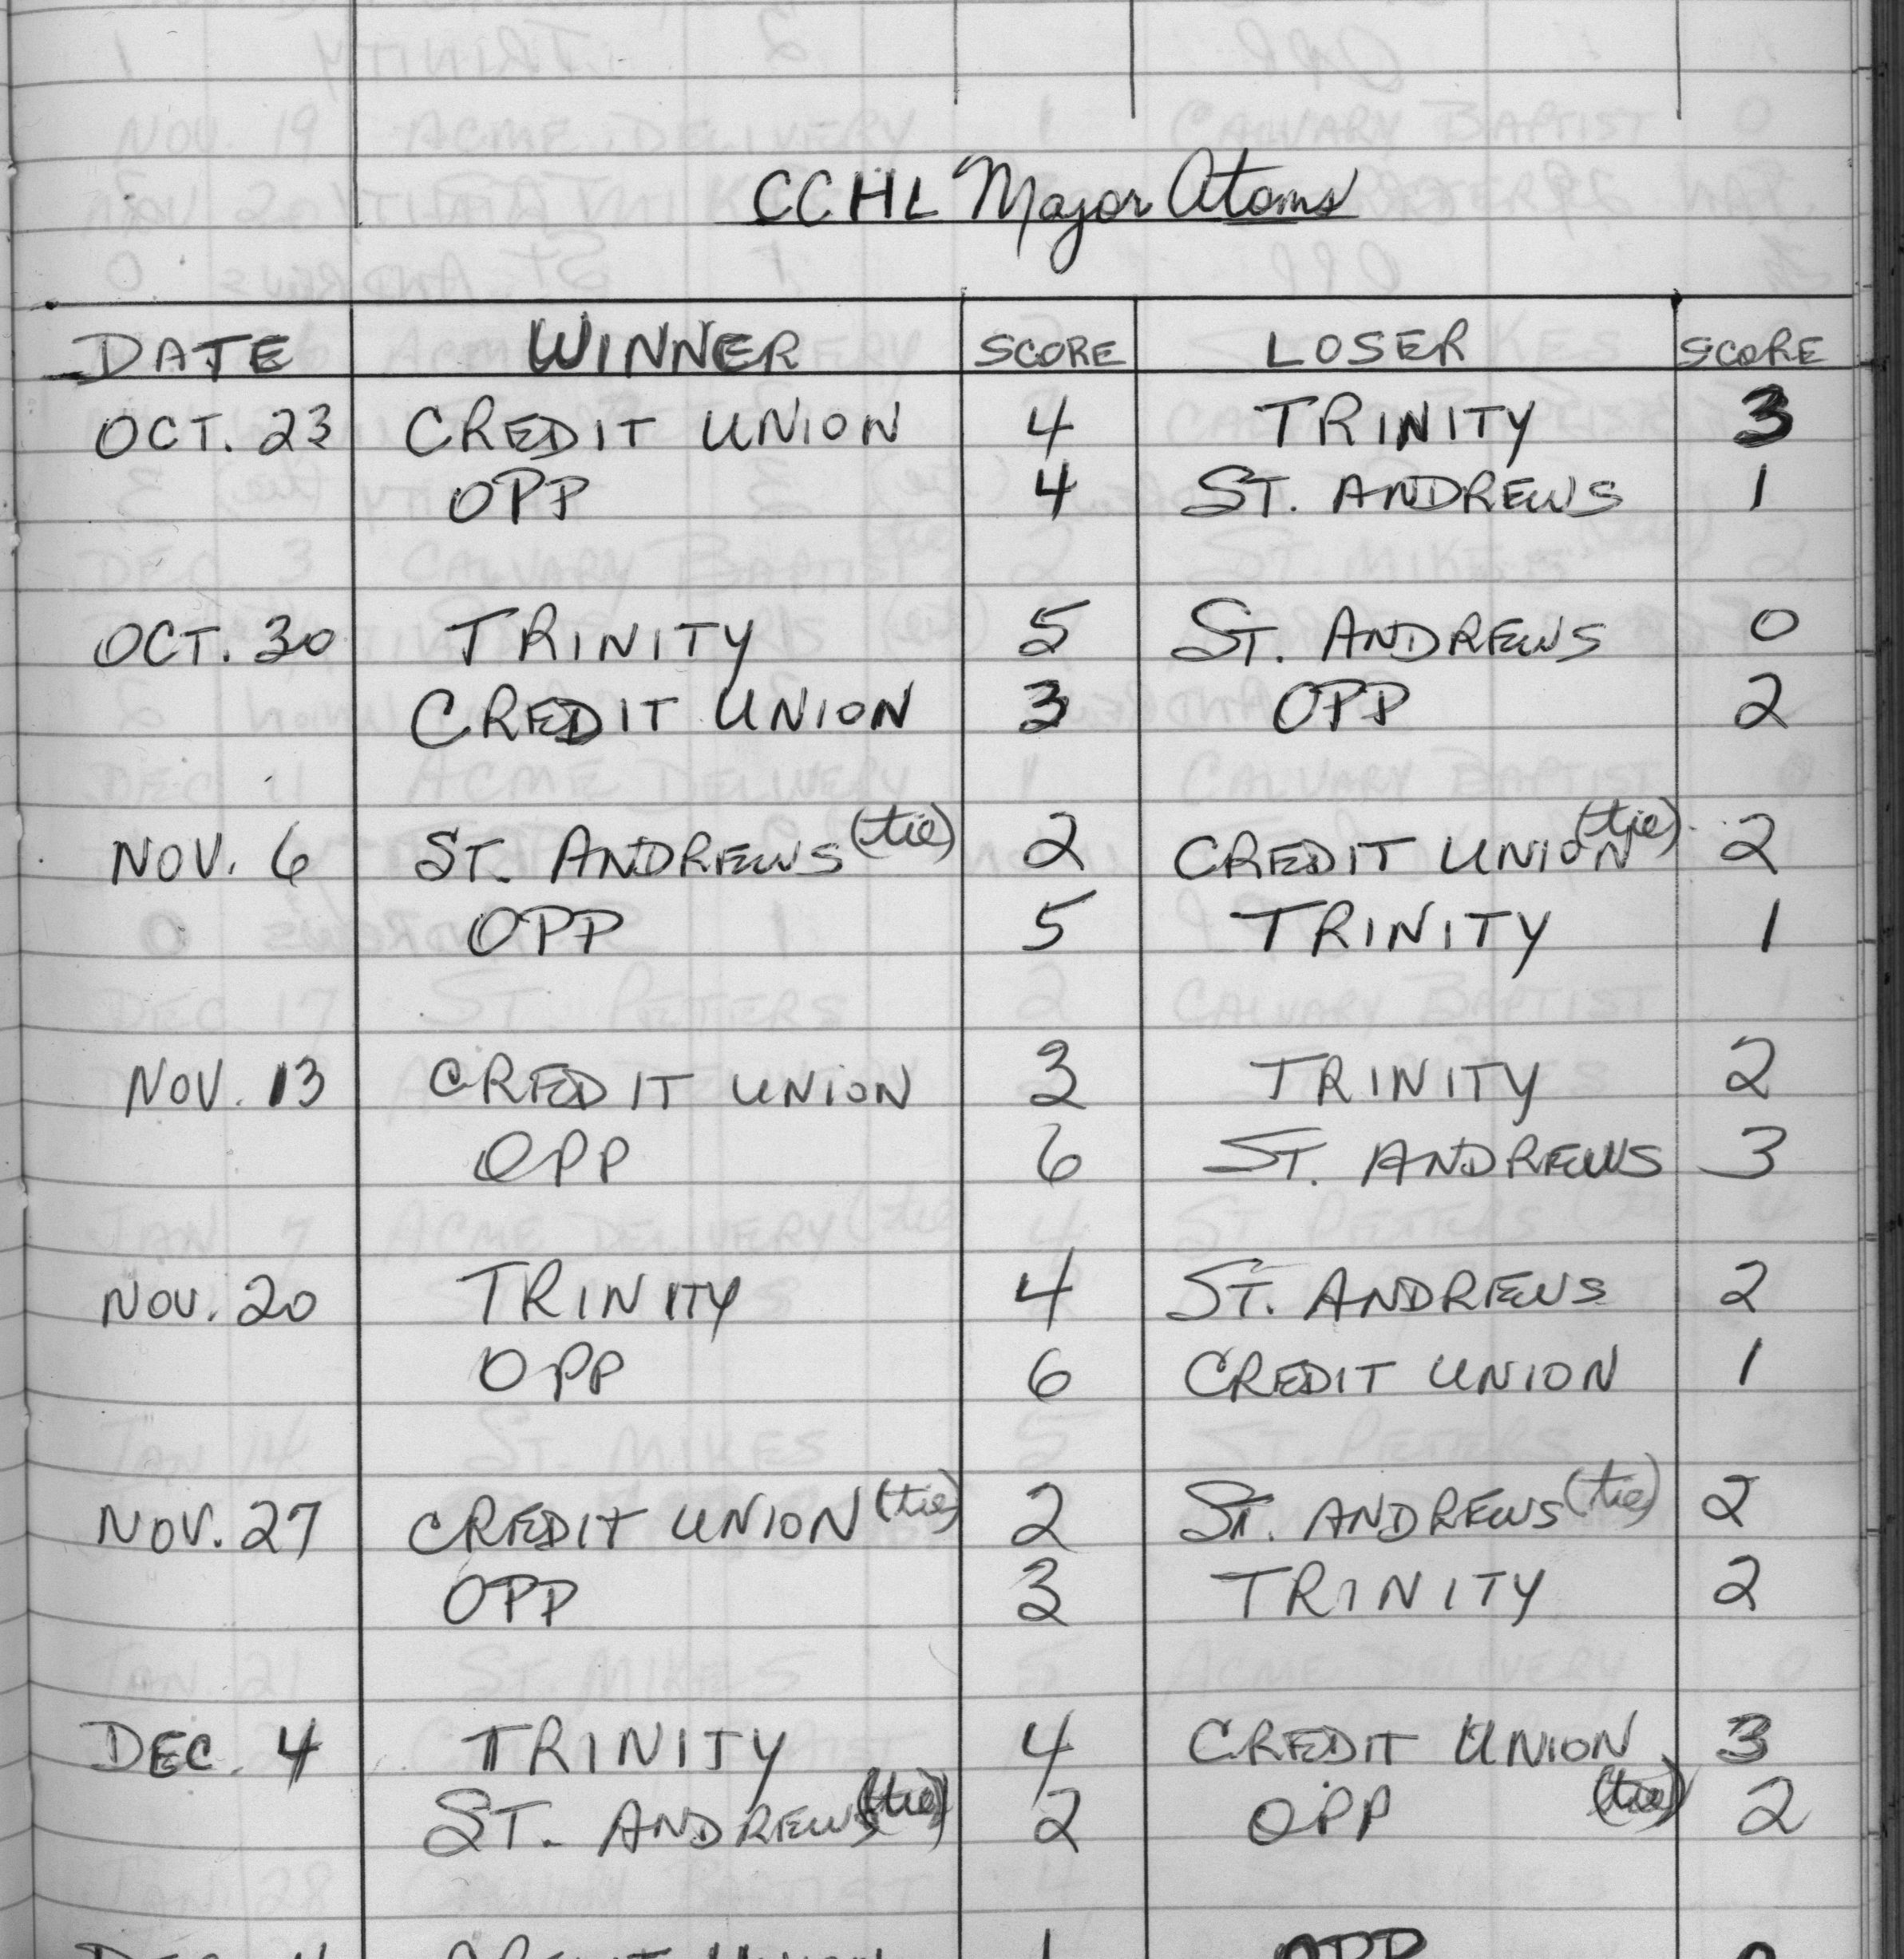 CCHL Major Atoms
DATE WINNER SCORE LOSER SCORE
OCT. 23 CREDIT UNION 4 TRINITY 3
OPP 4 ST. ANDREWS 1
OCT. 30 TRINITY 5 ST. ANDREWS 0
CREDIT UNION 3 OPP 2
NOV. 6 ST. ANDREWS (tie) 2 CREDIT UNION (tie) 2
OPP 5 TRINITY 1
NOV. 13 CREDIT UNION 3 TRINITY 2
OPP 6 ST. ANDREWS 3
NOV. 20 TRINITY 4 ST. ANDREWS 2
OPP 6 CREDIT UNION 1
NOV. 27 CREDIT UNION (tie) 2 ST. ANDREWS (tie) 2
OPP 3 TRINITY 2
DEC. 4 TRINITY 4 CREDIT UNION 3
ST. ANDREWS (tie) 2 OPP (tie) 2
CREDIT UNION 1 OPP